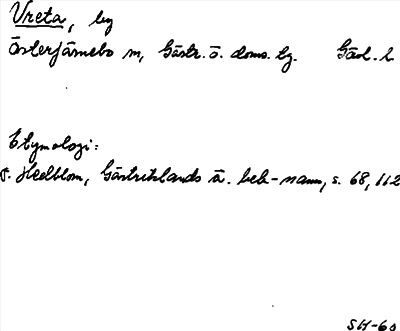 Vreta, by
Österfärnebo sn, Gästr. ö. doms. tg. Gävl. l.
Etymologi:
F. Hedblom, Gästriklands ä. beb-namn, s. 68, 112
SH-60